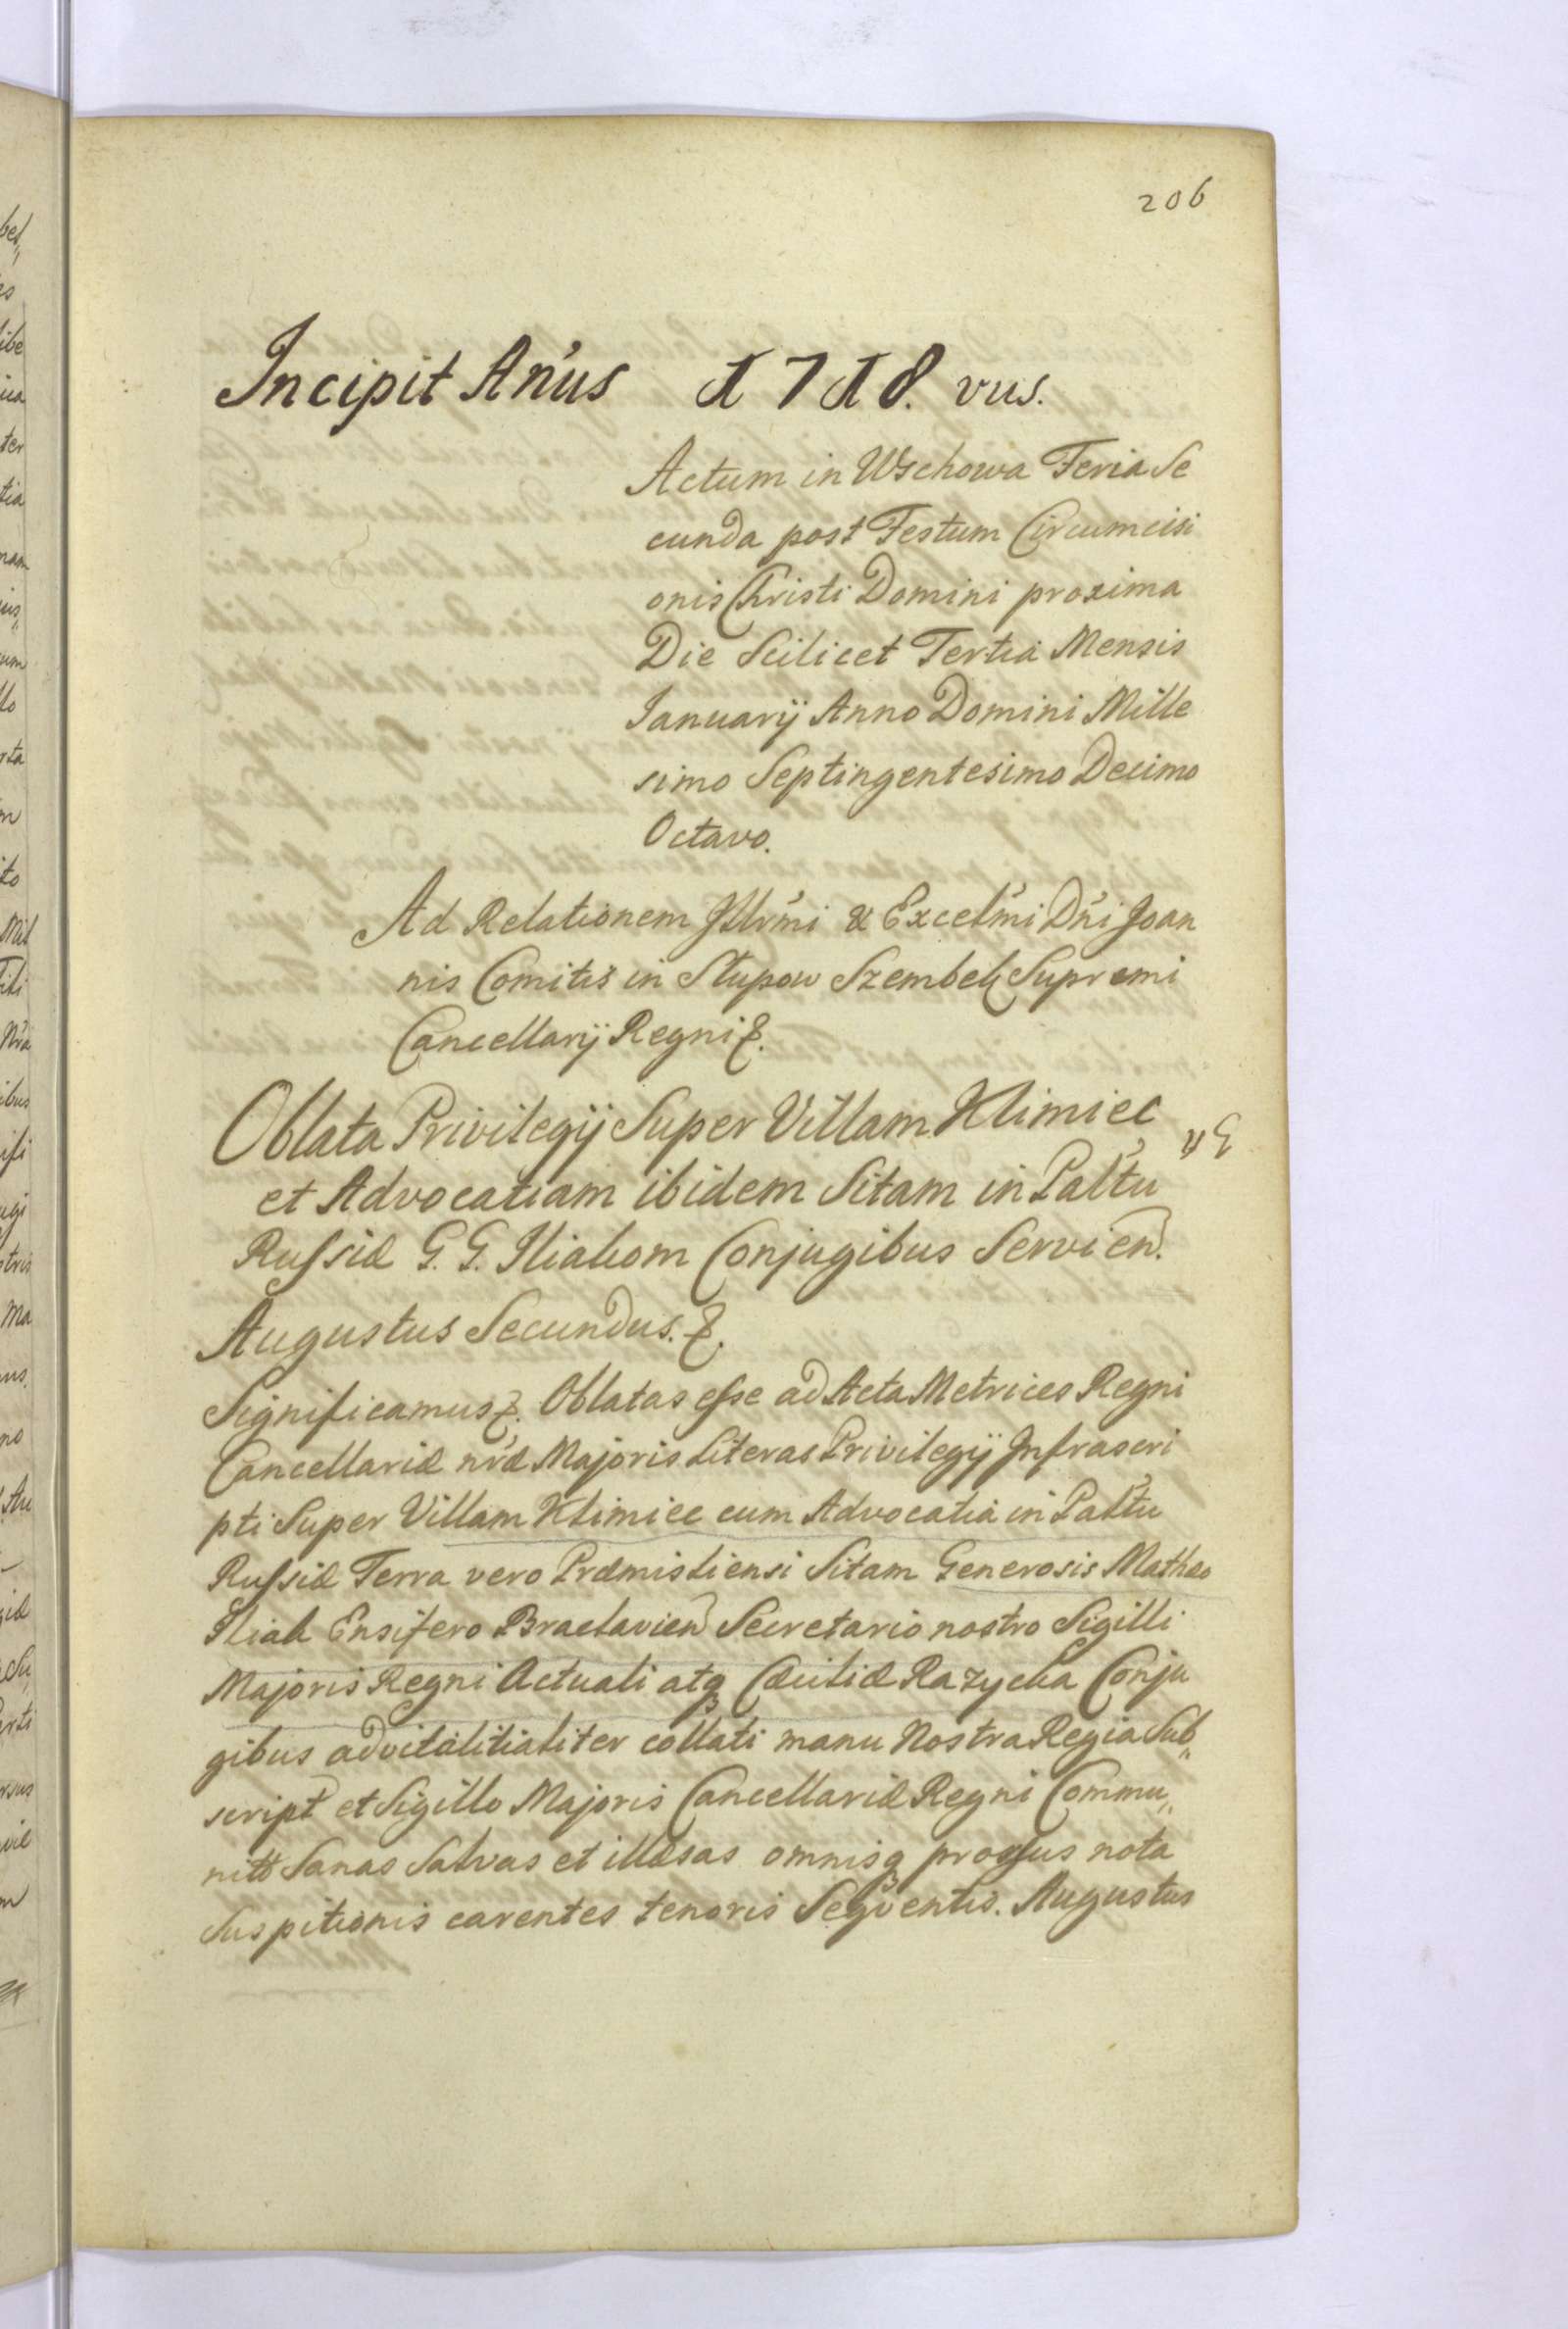 206
Incipit An̄us 1718. vus.
Actum in Wschowa Feria Se
cunda post Festum Circumcisi
onis Christi Domini proxima
Die Scilicet Tertia Mensis
Januarij Anno Domini Mille
simo Septingentesimo Decimo
Octavo.
Ad Relationem Jllrm̄i & Excelm̄i Dn̄i Joan
nis Comitis in Słupow Szembek Supremi
Cancellarij Regni &.
Oblata Privilegij Super Villam Klimiec
et Advocatiam ibidem Sitam in Paltu
Russiæ G. G. Iliakom Conjugibus Servien.
Augustus Secundus. &.
Significamus &. Oblatas esse ad Acta Metrices Regni
Cancellariæ nræ Majoris Literas Privilegij Infrascri
pti Super Villam Klimiec cum Advocatia in Paltu
Russiæ Terra vero Præmisliensi Sitam Generosis Mathæo
Iliak Ensifero Braclavien Secretario nostro Sigilli
Majoris Regni Actuali atq Cæciliæ Razycka Conju
gibus advitalitialiter collati manu Nostra Regia Sub„
script et Sigillo Majoris Cancellariæ Regni Commu„
nitt Sanas Salvas et illæsas omnisq prorsus nota
Suspitionis carentes tenoris Seqventis. Augustus